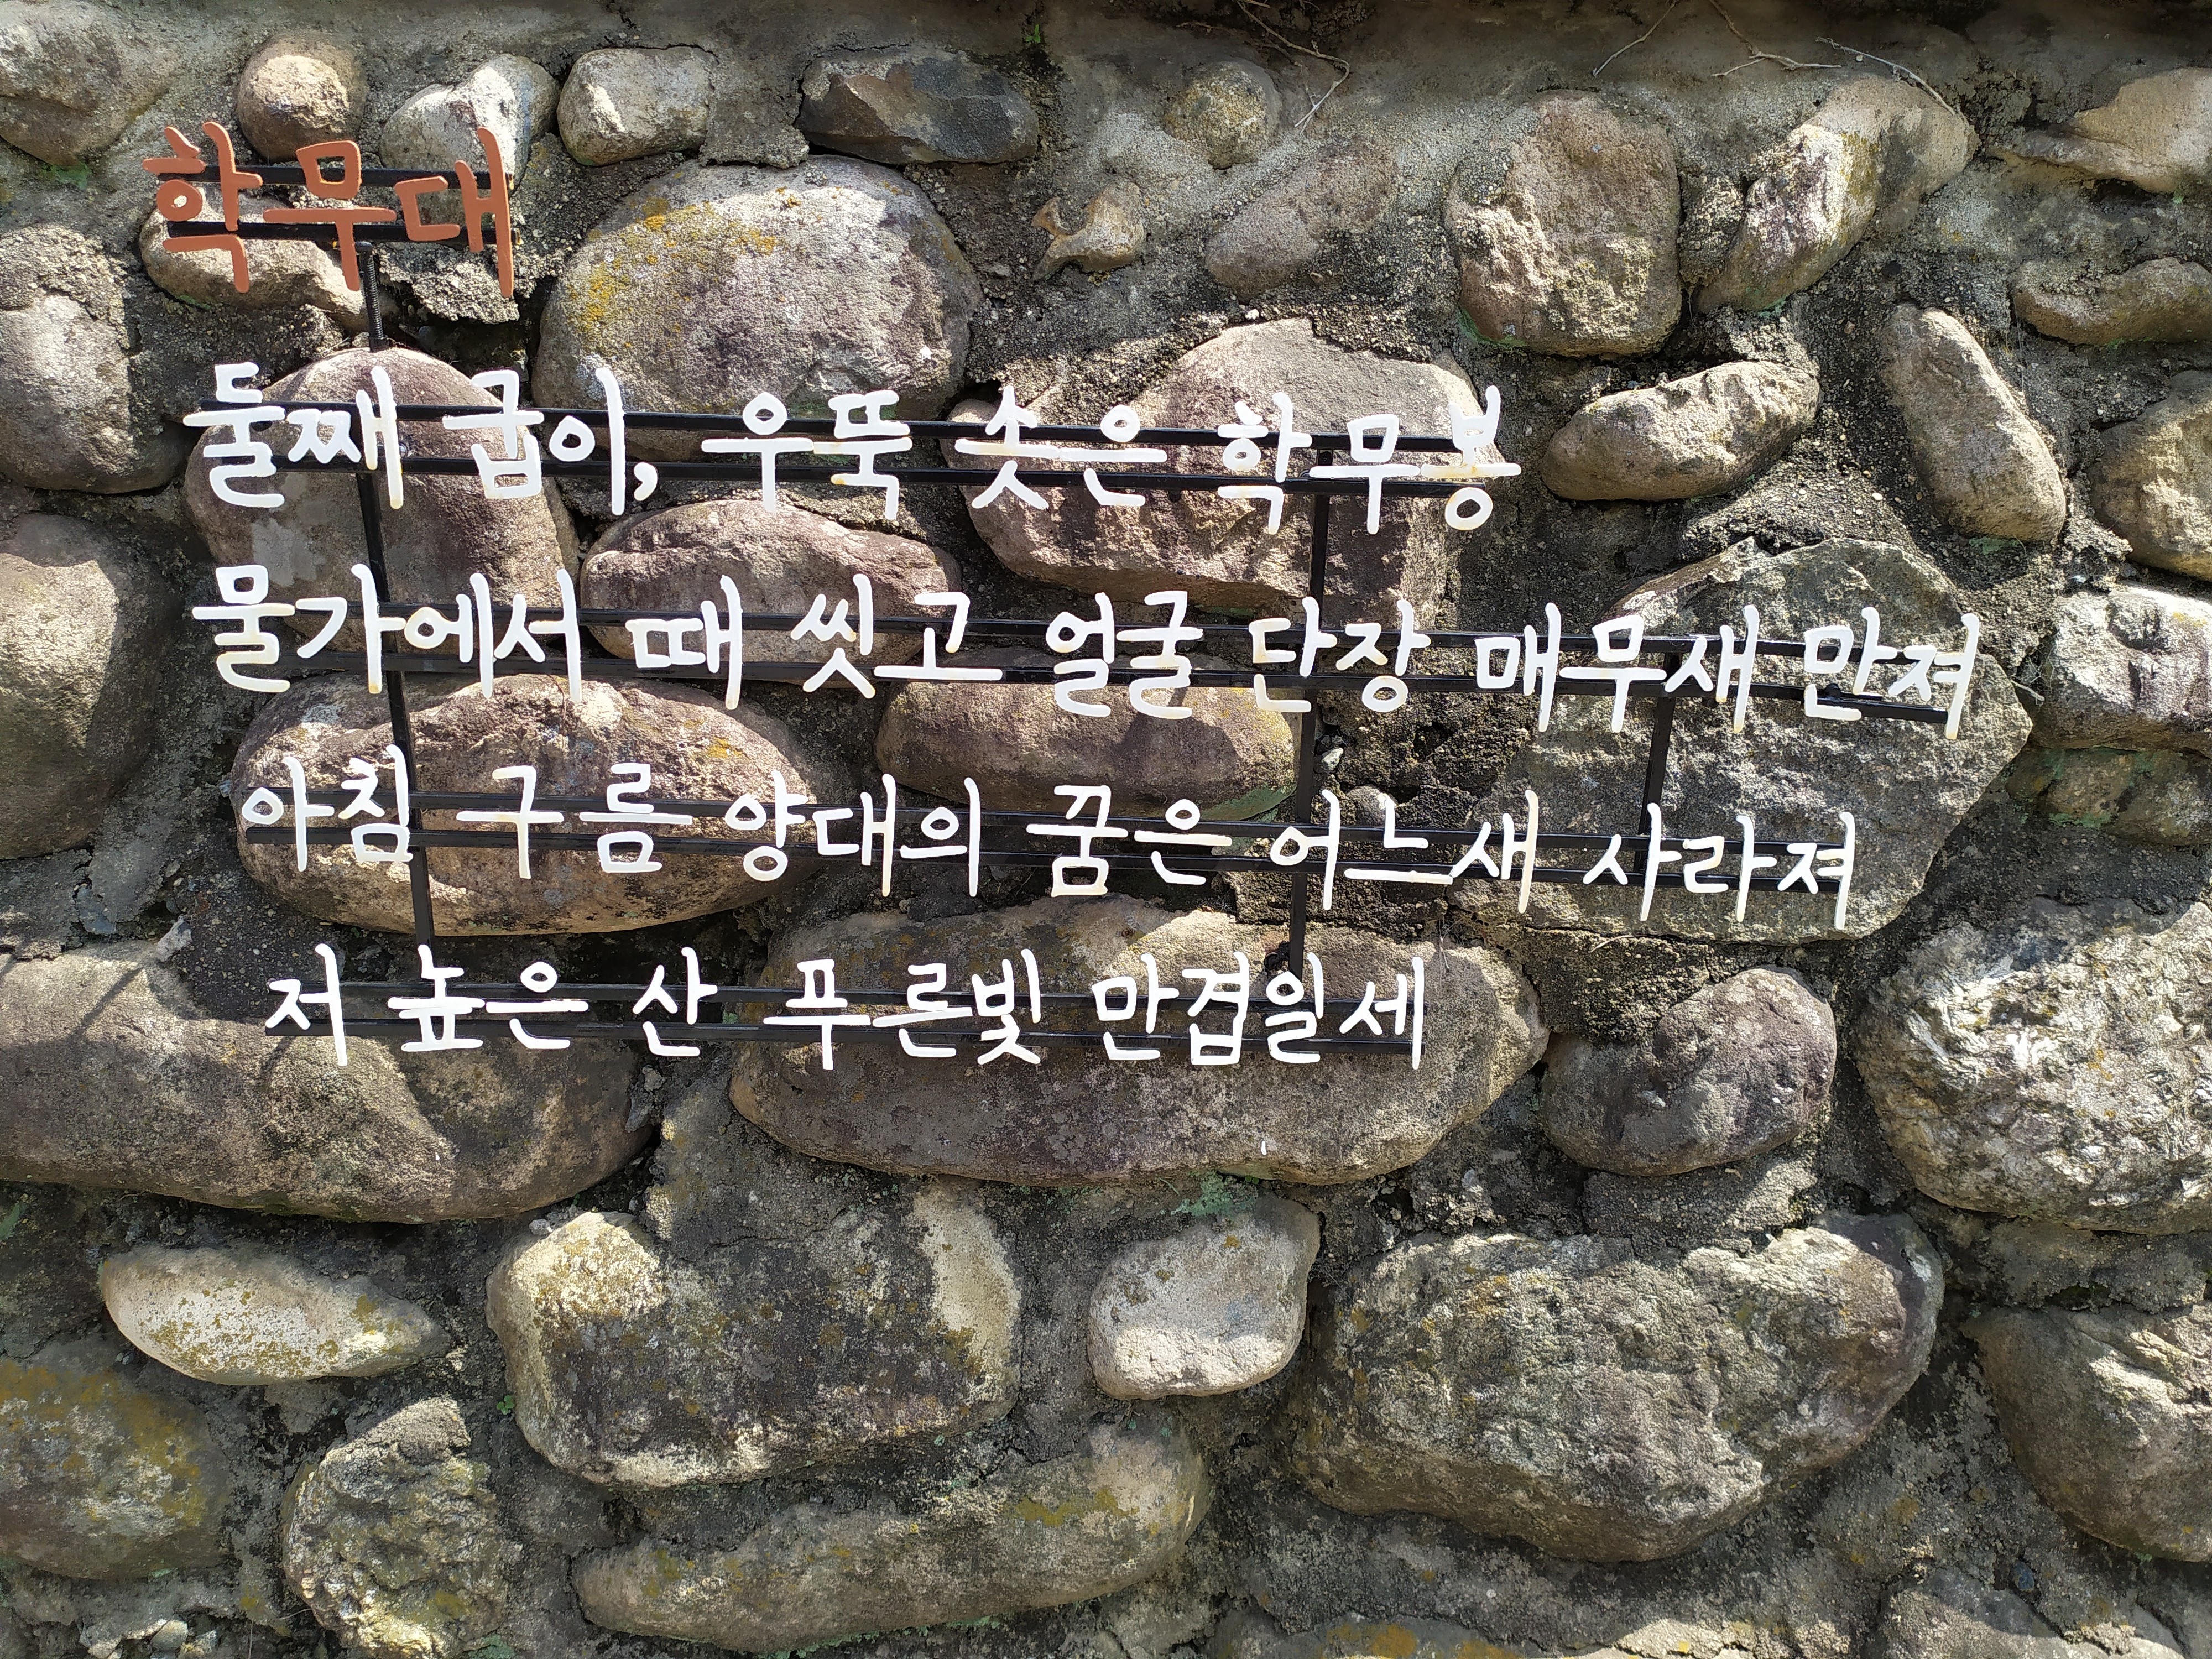 학무대
둘째 굽이, 우뚝 솟은 학무봉
물가에서 때 씻고 얼굴 단장 매무새 만져
아침 구름 양대의 꿈은 어느새 사라져
저 높은 산 푸른빛 만겹일세